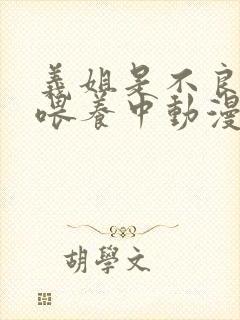 義姐是不良
喂養中動漫
胡學文